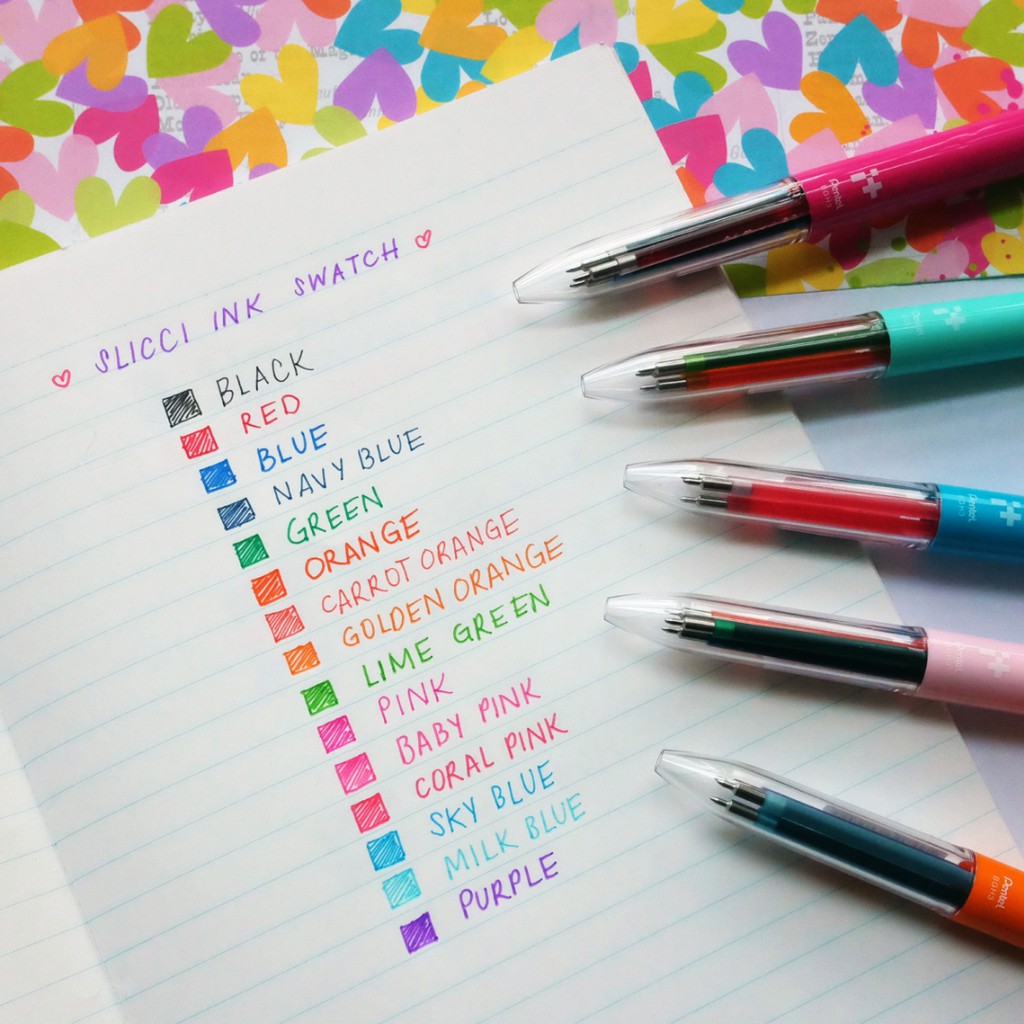 ♡ SLICCI INK SWATCH ♡
BLACK
RED
BLUE
NAVY BLUE
GREEN
ORANGE
CARROT ORANGE
GOLDEN ORANGE
LIME GREEN
PINK
BABY PINK
CORAL PINK
SKY BLUE
MILK BLUE
PURPLE
Pentel
BGH3
Pentel
Pentel
BGH3
Pentel
Pentel
BGH3